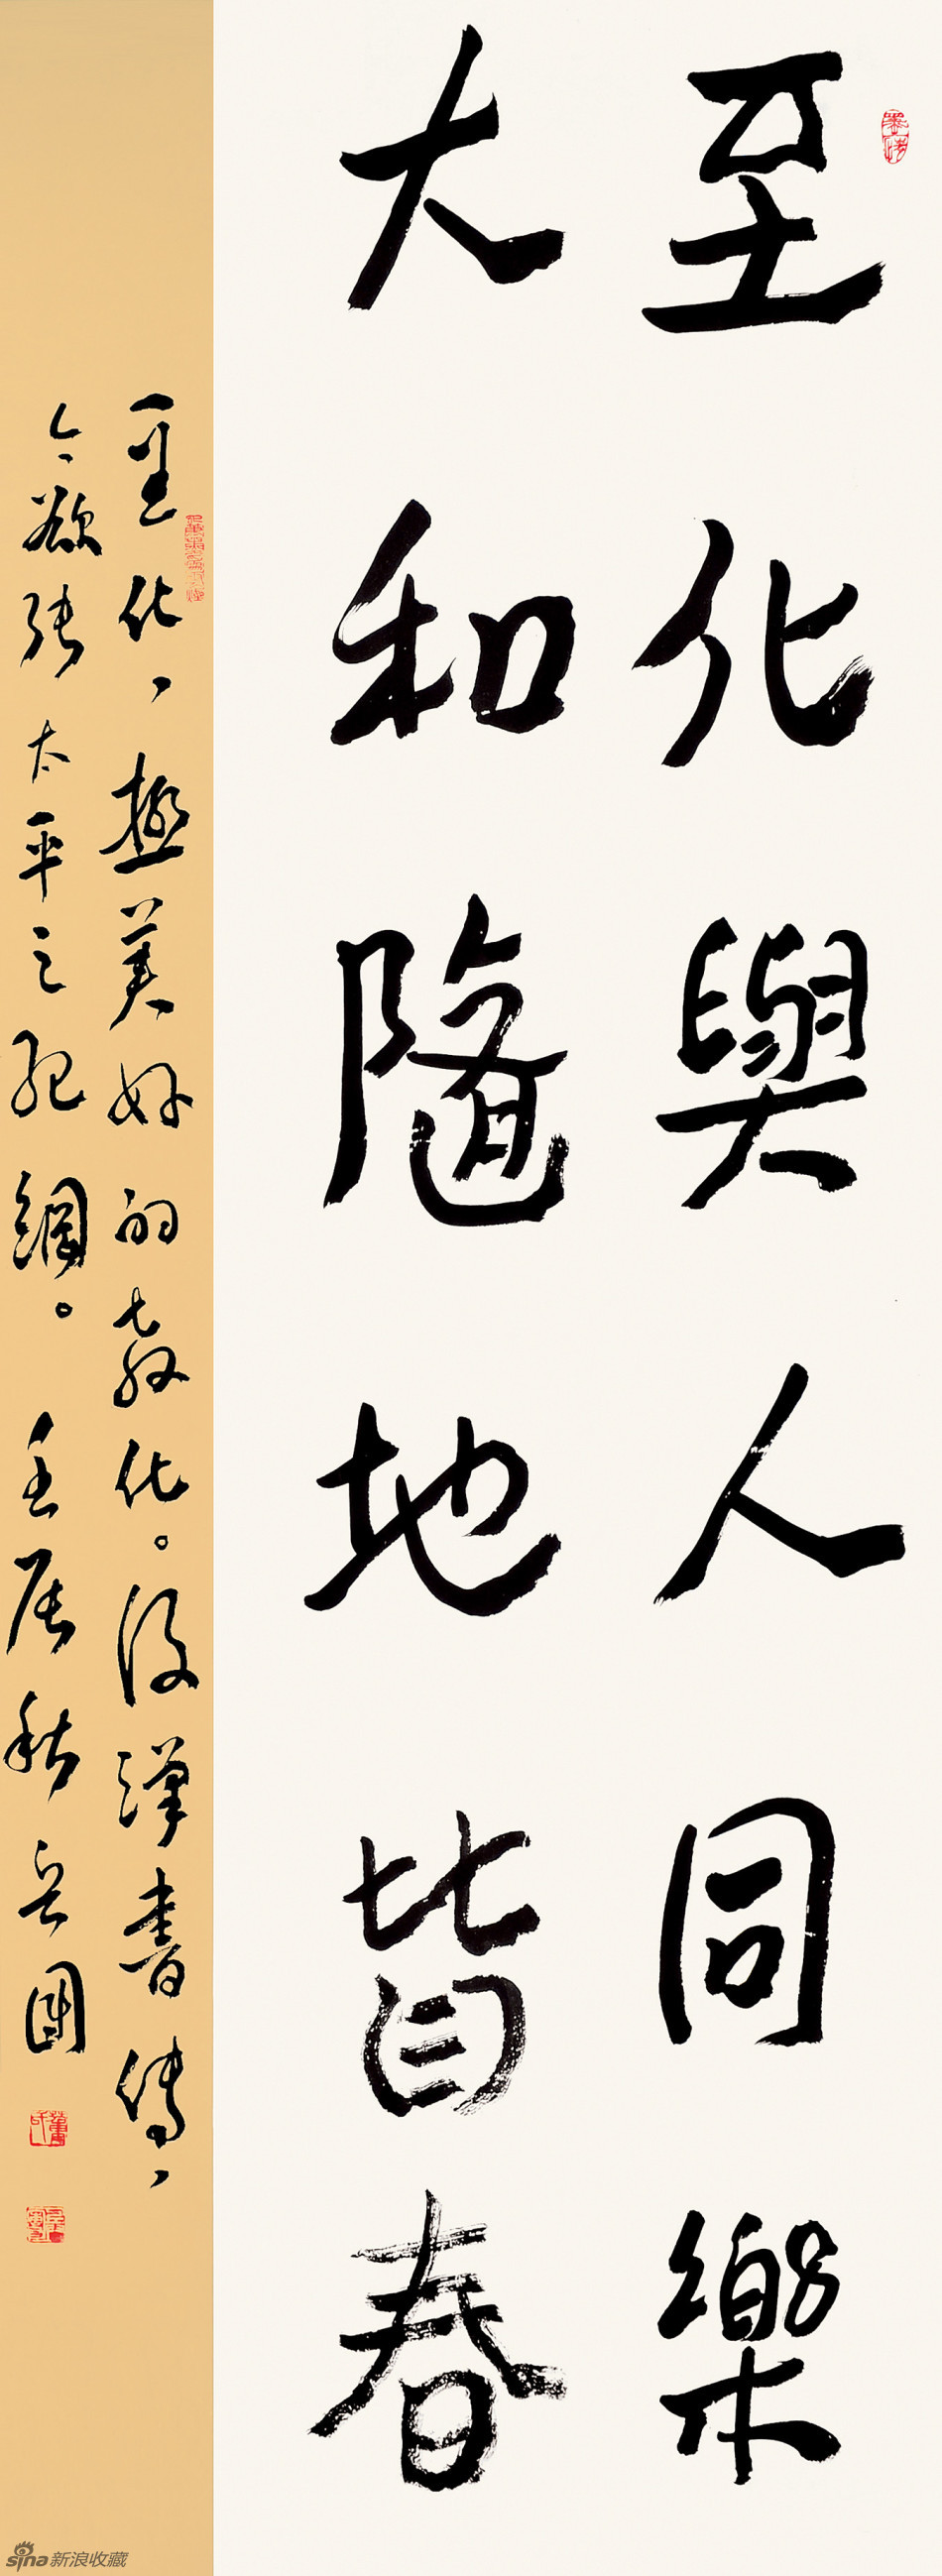 至化與人同樂
大和隨地皆春
至化，極美好的教化。後漢書傳，
今欲張太平之紀綱。壬辰秋
sina新浪收藏